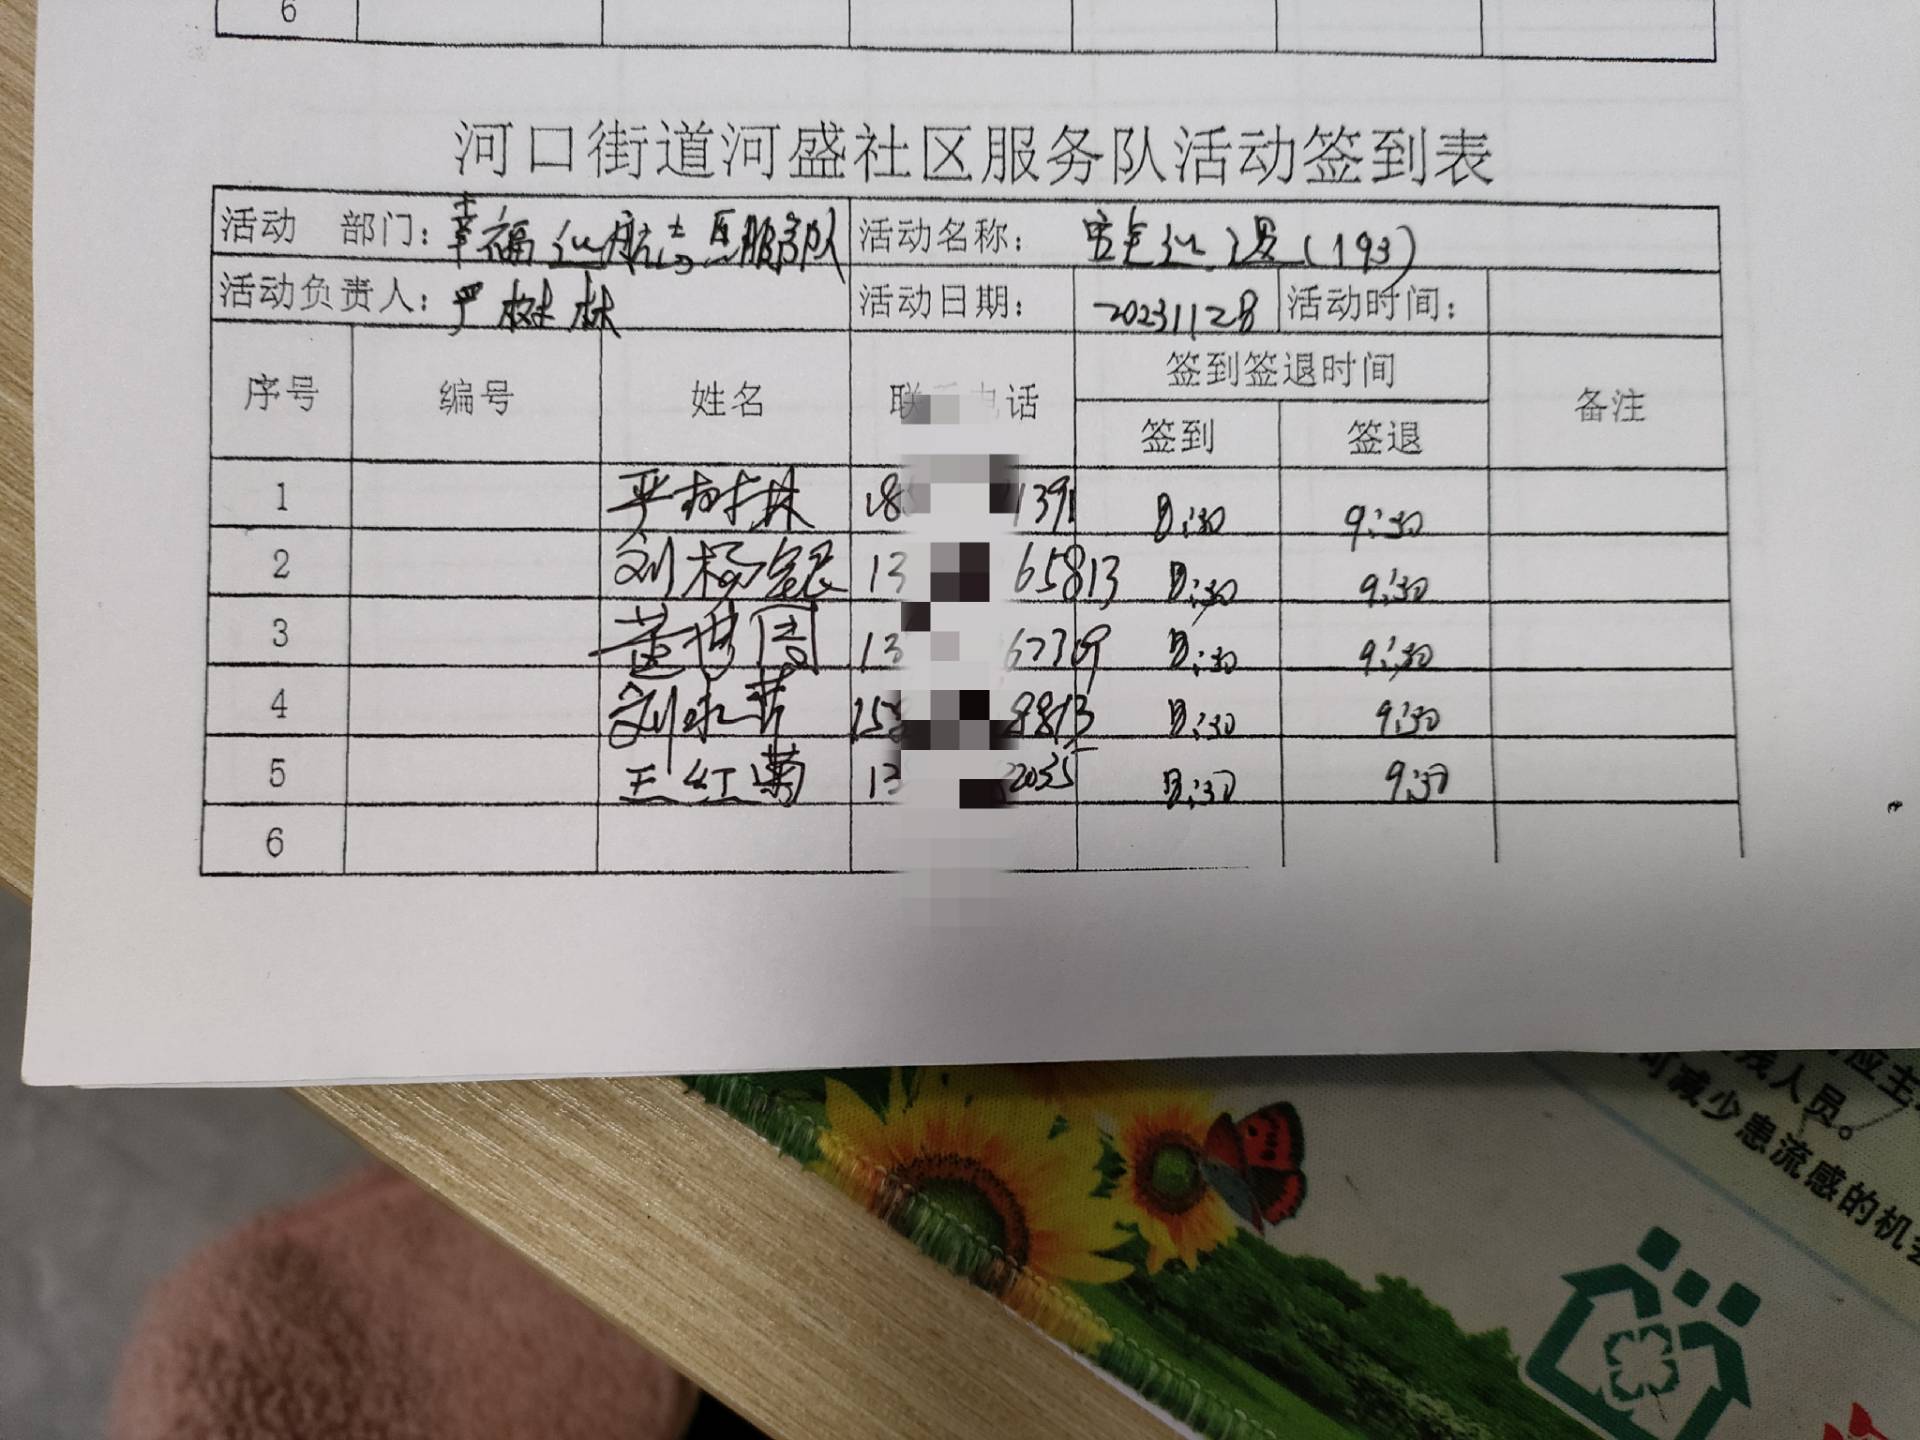 6
河口街道河盛社区服务队活动签到表
活动 部门：幸福巡航志愿服务队 活动名称：安全巡逻(193)
活动负责人：严树林 活动日期：20231128 活动时间：
序号 编号 姓名 联系电话 签到签退时间 备注
签到 签退
1 严树林 18 1391 8:30 9:30
2 刘杨银 13 65813 8:30 9:30
3 董世周 13 67319 8:30 9:30
4 刘永芳 158 8813 8:30 9:30
5 王红菊 13 22035 8:30 9:30
6
应主
线人员。
可减少患流感的机会